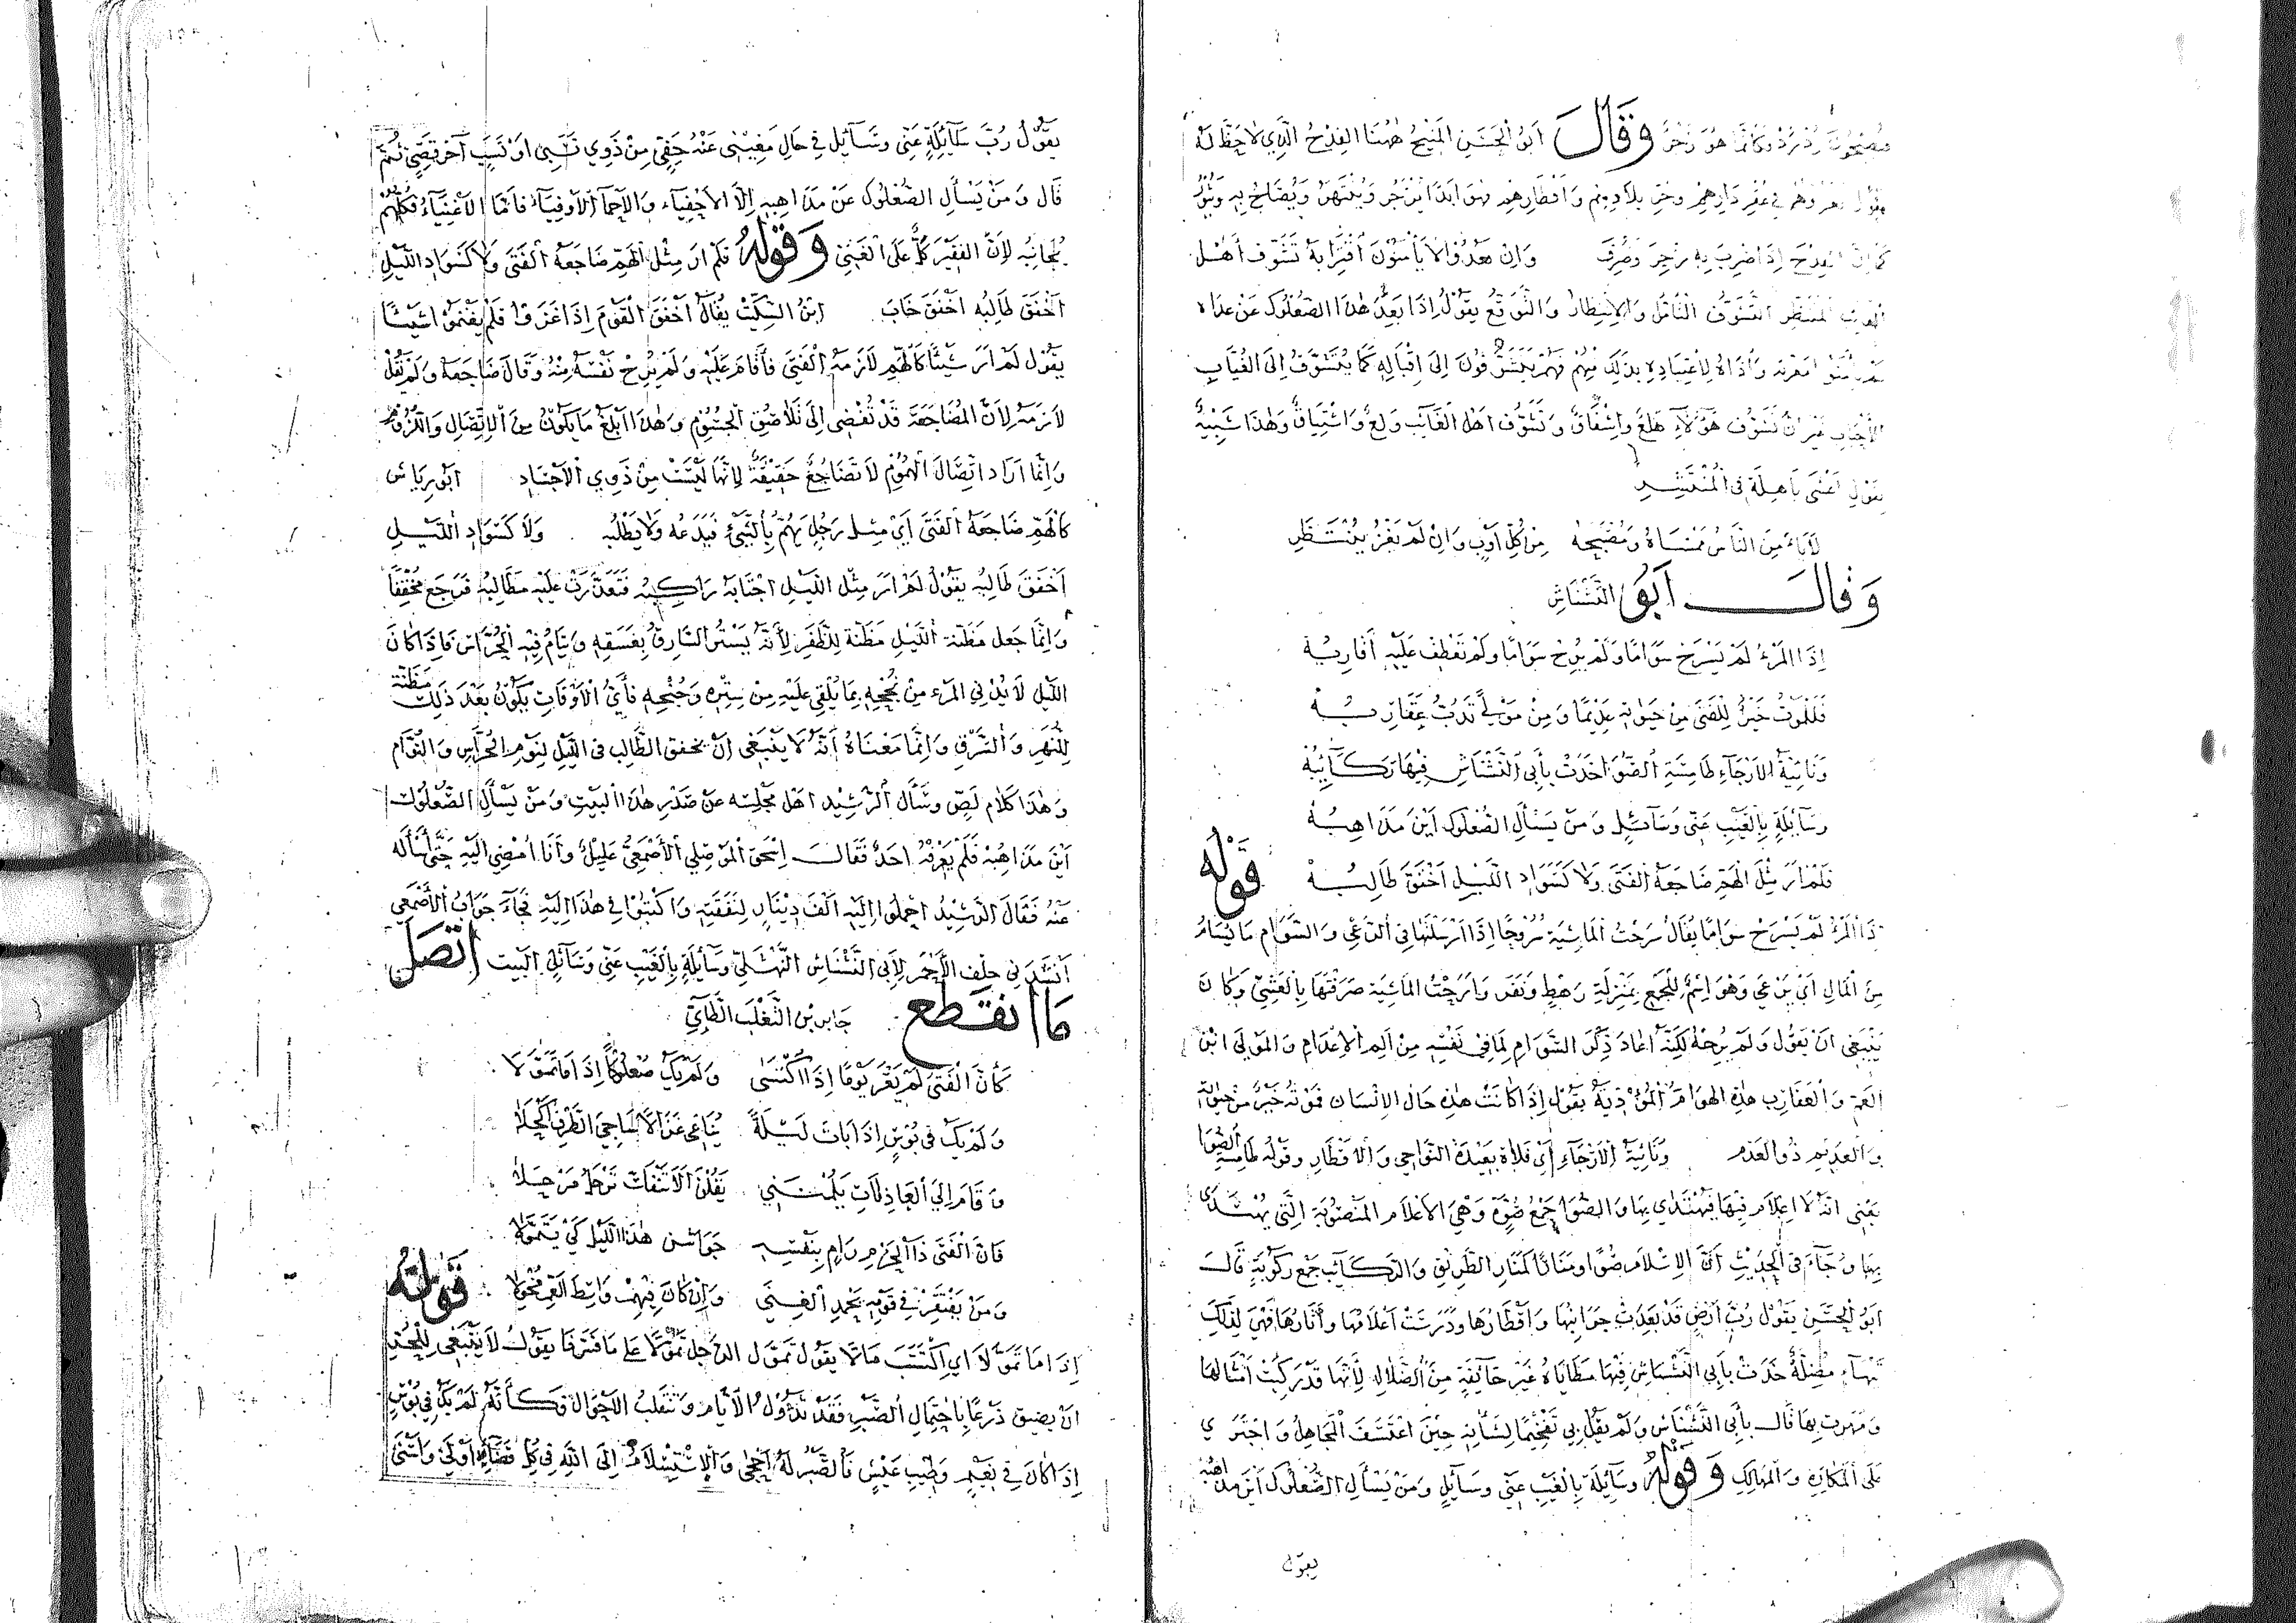 وَقَالَ أَبُو الْحَسَنِ الْمَنِيحُ هٰهُنَا الْقِدْحُ الَّذِي لَا حَظَّ لَهُ
فِي عُقْرِ دَارِهِمْ وَحَرِّ بِلَادِهِمْ وَأَقْطَارِهِمْ فَهُوَ أَبَدًا يُزْجَرُ وَيُنْتَهَرُ وَيُصَاحُ بِهِ
الْقِدْحَ إِذَا ضُرِبَ بِهِ زُجِرَ وَصُرِفَ وَإِنْ بَعُدُوا لَا يَأْمَنُونَ اقْتِرَابَهُ تَشَوُّفَ أَهْلِ
الْغَائِبِ الْمُنْتَظَرِ التَّشَوُّفُ التَّأَمُّلُ وَالِانْتِظَارُ وَالتَّوَقُّعُ يَقُولُ إِذَا بَعُدَ هٰذَا الصُّعْلُوكُ عَنْ عِدَاهُ
لَمْ يَأْمَنُوا مَعَرَّتَهُ وَأَذَاهُ لِاعْتِيَادِهِ بِذَلِكَ مِنْهُمْ فَهُمْ يَتَشَوَّفُونَ إِلَى إِقْبَالِهِ كَمَا يُتَشَوَّفُ إِلَى الْغُيَّابِ
الْأَحْبَابِ غَيْرَ أَنَّ تَشَوُّفَ هَؤُلَاءِ هَلَعٌ وَإِشْفَاقٌ وَتَشَوُّفَ أَهْلِ الْغَائِبِ وَلَعٌ وَاشْتِيَاقٌ وَهٰذَا شَبِيهٌ
بِقَوْلِ أَعْشَى بَاهِلَةَ فِي الْمُنْتَشِرِ
لَا يَأْمَنُ النَّاسُ مَمْسَاهُ وَمُصْبَحَهُ مِنْ كُلِّ أَوْبٍ وَإِنْ لَمْ يَغْزُ يُنْتَظَرِ
وَقَالَ أَبُو النَّشْنَاشِ
إِذَا الْمَرْءُ لَمْ يَسْرَحْ سَوَامًا وَلَمْ يُرِحْ سَوَامًا وَلَمْ تَعْطِفْ عَلَيْهِ أَقَارِبُهُ
فَلَلْمَوْتُ خَيْرٌ لِلْفَتَى مِنْ حَيَاتِهِ عَدِيمًا وَمِنْ مَوْلًى تَدِبُّ عَقَارِبُهُ
وَنَائِيَةُ الْأَرْجَاءِ طَامِسَةِ الصُّوَى خَدَتْ بِأَبِي النَّشْنَاشِ فِيهَا رَكَائِبُهُ
وَسَائِلَةٍ بِالْغَيْبِ عَنِّي وَسَائِلٍ وَمَنْ يَسْأَلُ الصُّعْلُوكَ أَيْنَ مَذَاهِبُهُ
فَلَمْ أَرَ مِثْلَ الْهَمِّ ضَاجَعَهُ الْفَتَى وَلَا كَسَوَادِ اللَّيْلِ أَخْفَقَ طَالِبُهُ قَوْلُهُ
إِذَا الْمَرْءُ لَمْ يَسْرَحْ سَوَامًا يُقَالُ سَرَحْتُ الْمَاشِيَةَ سُرُوحًا إِذَا أَرْسَلْتَهَا فِي الرَّعْيِ وَالسَّوَامِ مَا يُسَامُ
مِنَ الْمَالِ أَيْ يَرْعَى وَهُوَ اسْمٌ لِلْجَمْعِ بِمَنْزِلَةِ رَهْطٍ وَنَفَرٍ وَأَرَحْتُ الْمَاشِيَةَ صَرَفْتُهَا بِالْعَشِيِّ وَكَانَ
يَنْبَغِي أَنْ يَقُولَ وَلَمْ يُرِحْهُ لَكِنَّهُ أَعَادَ ذِكْرَ السَّوَامِ لِمَا فِي نَفْسِهِ مِنْ أَلَمِ الْإِعْدَامِ وَالْمَوْلَى ابْنُ
الْعَمِّ وَالْعَقَارِبُ هٰذِهِ الْهَوَامُّ الْمُؤْذِيَةُ يَقُولُ إِذَا كَانَتْ هٰذِهِ حَالُ الْإِنْسَانِ فَمَوْتُهُ خَيْرٌ مِنْ حَيَاتِهِ
وَالْعَدِيمُ ذُو الْعَدَمِ وَنَائِيَةُ الْأَرْجَاءِ أَيْ فَلَاةٌ بَعِيدَةُ النَّوَاحِي وَالْأَقْطَارِ وَقَوْلُهُ طَامِسَةُ الصُّوَا
يَعْنِي أَنَّهُ لَا أَعْلَامَ فِيهَا فَيُهْتَدَى بِهَا وَالصُّوَا جَمْعُ صُوَّةٍ وَهِيَ الْأَعْلَامُ الْمَنْصُوبَةُ الَّتِي يُهْتَدَى
بِهَا وَجَاءَ فِي الْحَدِيثِ أَنَّ لِلْإِسْلَامِ صُوًا وَمَنَارًا كَمَنَارِ الطَّرِيقِ وَالرَّكَائِبُ جَمْعُ رَكُوبَةٍ قَالَ
أَبُو الْحَسَنِ يَقُولُ رُبَّ أَرْضٍ قَدْ بَعِدَتْ جَوَانِبُهَا وَأَقْطَارُهَا وَدَرَسَتْ أَعْلَامُهَا وَآثَارُهَا فَهِيَ لِذَلِكَ
مَضِلَّةٌ خَدَتْ بِأَبِي النَّشْنَاشِ فِيهَا مَطَايَاهُ غَيْرَ خَائِفَةٍ مِنَ الضَّلَالِ لِأَنَّهَا قَدْ رَكِبَتْ أَمْثَالَهَا
وَمَهَرَتْ بِهَا قَالَ بِأَبِي النَّشْنَاشِ وَلَمْ يَقُلْ بِي تَفْخِيمًا لِشَأْنِهِ حِينَ اعْتَسَفَ الْمَجَاهِلَ وَاجْتَرَى
عَلَى الْمَكَارِهِ وَالْمَهَالِكِ وَقَوْلُهُ وَسَائِلَةٍ بِالْغَيْبِ عَنِّي وَسَائِلٍ وَمَنْ يَسْأَلِ الصُّعْلُوكَ أَيْنَ مَذَاهِبُهُ
يقول
يَقُولُ رُبَّ سَائِلَةٍ عَنِّي وَسَائِلٍ فِي حَالِ مَغِيبِي عَنْهُ حَفِيٍّ مِنْ ذَوِي نَسَبِي أَوْ نَسِيبٍ آخَرَ قَصِيٍّ ثُمَّ
قَالَ وَمَنْ يَسْأَلِ الصُّعْلُوكَ عَنْ مَذَاهِبِهِ إِلَّا الْأَحْفِيَاءُ وَالْأَحِمَّاءُ الْأَوْفِيَاءُ فَأَمَّا الْأَغْنِيَاءُ فَكُلُّهُمْ
يُجَانِبُهُ لِأَنَّ الْفَقِيرَ كَلٌّ عَلَى الْغَنِيِّ وَقَوْلُهُ فَلَمْ أَرَ مِثْلَ الْهَمِّ ضَاجَعَهُ الْفَتَى وَلَا كَسَوَادِ اللَّيْلِ
أَخْفَقَ طَالِبُهُ أَخْفَقَ خَابَ ابْنُ السِّكِّيتِ يُقَالُ أَخْفَقَ الْقَوْمُ إِذَا غَزَوْا فَلَمْ يَغْنَمُوا شَيْئًا
يَقُولُ لَمْ أَرَ شَيْئًا كَالْهَمِّ لَازَمَهُ الْفَتَى فَأَقَامَ عَلَيْهِ وَلَمْ يُرِحْ نَفْسَهُ مِنْهُ وَقَالَ ضَاجَعَهُ وَلَمْ يَقُلْ
لَازَمَهُ لِأَنَّ الْمُضَاجَعَةَ قَدْ تُفْضِي إِلَى تَلَاصُقِ الْجُسُومِ وَهٰذَا أَبْلَغُ مَا يَكُونُ مِنَ الِاتِّصَالِ وَاللُّزُومِ
وَإِنَّمَا أَرَادَ اتِّصَالَ الْهُمُومِ لَا تَضَاجُعٌ حَقِيقَةً لِأَنَّهَا لَيْسَتْ مِنْ ذَوِي الْأَجْسَادِ أَبُو رِيَاشٍ
كَالْهَمِّ ضَاجَعَهُ الْفَتَى أَيْ مِثْلَ رَجُلٍ يَهُمُّ بِالشَّيْءِ فَيَدَعُهُ وَلَا يَطْلُبُهُ وَلَا كَسَوَادِ اللَّيْلِ
أَخْفَقَ طَالِبُهُ يَقُولُ لَمْ أَرَ مِثْلَ اللَّيْلِ اجْتَابَهُ رَاكِبُهُ فَتَعَذَّرَتْ عَلَيْهِ مَطَالِبُهُ فَرَجَعَ مُخْفِقًا
وَإِنَّمَا جَعَلَ مَظَنَّةَ اللَّيْلِ مَظَنَّةً لِلظَّفَرِ لِأَنَّهُ يَسْتُرُ السَّارِقَ بِغَسَقِهِ وَيَنَامُ فِيهِ الْحُرَّاسُ فَإِذَا كَانَ
اللَّيْلُ لَا يُدْنِي الْمَرْءَ مِنْ نُجْحِهِ بِمَا يُلْقِي عَلَيْهِ مِنْ سِتْرِهِ وَجُنْحِهِ فَأَيُّ الْأَوْقَاتِ يَكُونُ بَعْدَ ذَلِكَ مَظَنَّةً
وَالسَّرَقِ وَإِنَّمَا مَعْنَاهُ أَنَّهُ لَا يَنْبَغِي أَنْ يُخْفِقَ الطَّالِبُ فِي اللَّيْلِ لِنَوْمِ الْحُرَّاسِ وَالنُّوَّامِ
وَهٰذَا كَلَامُ لِصٍّ وَسَأَلَ الرَّشِيدُ أَهْلَ مَجْلِسِهِ عَنْ صَدْرِ هٰذَا الْبَيْتِ وَمَنْ يَسْأَلُ الصُّعْلُوكَ
أَيْنَ مَذَاهِبُهُ فَلَمْ يَعْرِفْهُ أَحَدٌ فَقَالَ إِسْحٰقُ الْمَوْصِلِي الْأَصْمَعِيُّ عَلِيلٌ وَأَنَا أَمْضِي إِلَيْهِ حَتَّى أَسْأَلَهُ
عَنْهُ فَقَالَ الرَّشِيدُ احْمِلُوا إِلَيْهِ أَلْفَ دِينَارٍ لِنَفَقَتِهِ وَاكْتُبُوا فِي هٰذَا إِلَيْهِ فَجَاءَ جَوَابُ الْأَصْمَعِي
أَنْشَدَنِي خَلَفُ الْأَحْمَرُ لِأَبِي النَّشْنَاشِ النَّهْشَلِيِّ وَسَائِلَةٍ بِالْغَيْبِ عَنِّي وَسَائِلٍ الْبَيْتَ اتَّصَلَ
مَا انْقَطَعَ جَابِرُ بْنُ الثَّعْلَبِ الطَّائِيُّ
كَأَنَّ الْفَتَى لَمْ يَعْرَ يَوْمًا إِذَا اكْتَسَى وَلَمْ يَكُ صُعْلُوكًا إِذَا مَا تَمَوَّلَا
وَلَمْ يَكُ فِي بُؤْسٍ إِذَا بَاتَ لَيْلَةً يُنَاغِي غَزَالًا سَاجِيَ الطَّرْفِ أَكْحَلَا
وَقَامَ إِلَيَّ الْعَاذِلَاتُ يَلُمْنَنِي يَقُلْنَ أَلَا تَنْفَكُّ تَرْحَلُ مَرْحَلَا
فَإِنَّ الْفَتَى ذَا الْحَزْمِ رَامٍ بِنَفْسِهِ جَوَاشِنَ هٰذَا اللَّيْلِ كَيْ يَتَمَوَّلَا
وَمَنْ يَفْتَقِرْ فِي قَوْمِهِ يَحْمَدِ الْغِنَى وَإِنْ كَانَ فِيهِمْ وَاسِطَ الْعَمِّ مُخْوِلَا قَوْلُهُ
إِذَا مَا تَمَوَّلَا أَيْ اكْتَسَبَ مَالًا يَقُولُ تَمَوَّلَ الرَّجُلُ تَمَوُّلًا عَلَى مَا فَسَّرْنَا يَقُولُ لَا يَنْبَغِي لِلْحُرِّ
أَنْ يَضِيقَ ذَرْعًا بِاحْتِمَالِ الضَّيْرِ فَقَدْ تَدُولُ الْأَيَّامُ وَتَنْقَلِبُ الْأَحْوَالُ فَكَأَنَّهُ لَمْ يَكُ فِي بُؤْسٍ
إِذَا كَانَ فِي نَعِيمٍ وَطِيبِ عَيْشٍ فَالصَّبْرُ لَهُ أَحْجَى وَالِاسْتِسْلَامُ إِلَى اللَّهِ فِي كُلِّ قَضَائِهِ أَوْلَى وَأَسْنَى